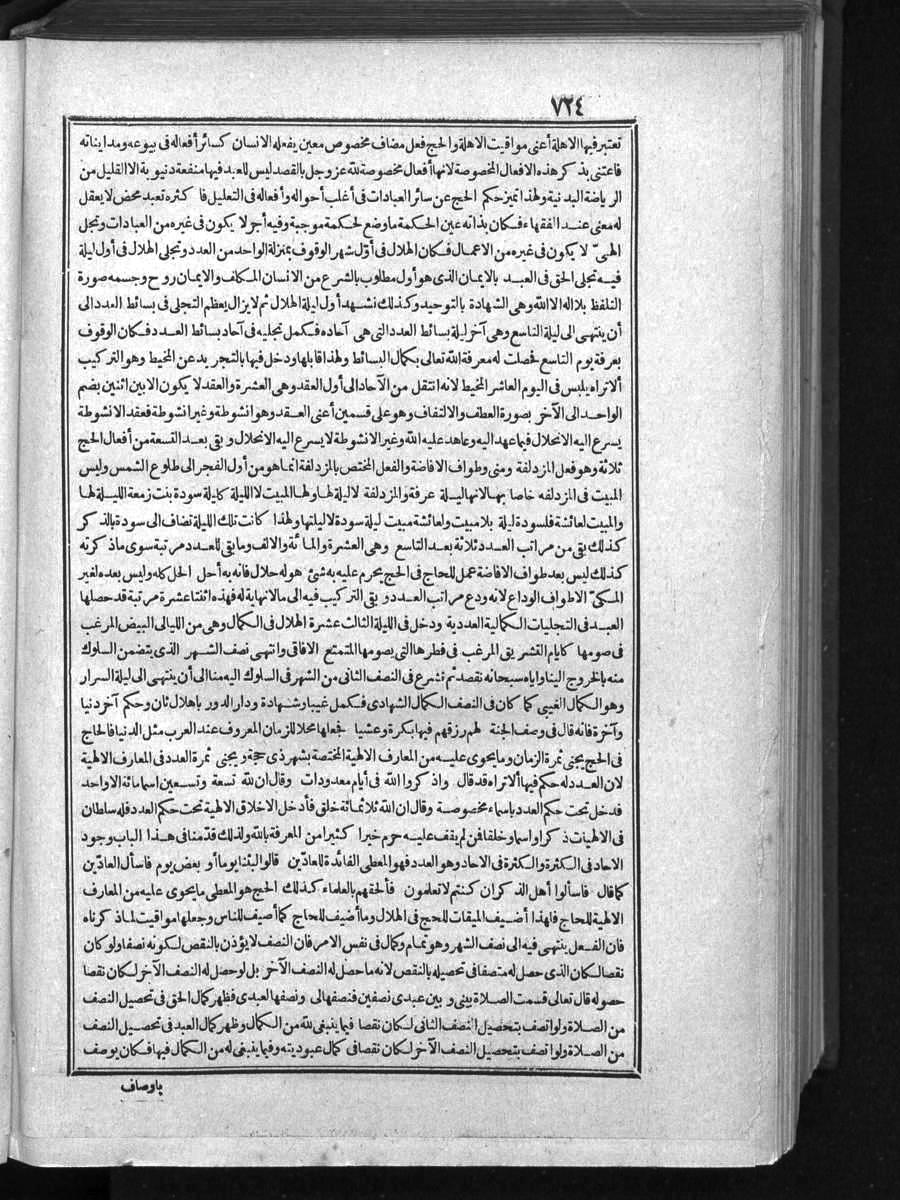 ٧٢٤
تعتبر فيها الاهلة أعنى مواقيت الاهلة والحج فعل مضاف مخصوص معين يفعله الانسان كسائر أفعاله فى بيوعه ومدايناته
فاعتنى بذكر هذه الافعال المخصوصة لانها أفعال مخصوصة لله عز وجل بالقصد ليس للعبد فيها منفعة دنيوية الا القليل من
الرياضة البدنية ولهذا تميز حكم الحج عن سائر العبادات فى أغلب أحواله وأفعاله فى التعليل فاكثره تعبد محض لا يعقل
له معنى عند الفقهاء فكان بذاته عين الحكمة ما وضع لحكمة موجبة وفيه أجر لا يكون فى غيره من العبادات وتجل
الهىّ لا يكون فى غيره من الاعمال فكان الهلال فى أوّل شهر الوقوف بمنزلة الواحد من العدد وتجلى الهلال فى أول ليلة
فيه تجلى الحق فى العبد بالايمان الذى هو أول مطلوب بالشرع من الانسان المكلف والايمان روح وجسمه صورة
التلفظ بلا اله الا الله وهى الشهادة بالتوحيد وكذلك نشهد أول ليلة الهلال ثم لا يزال يعظم التجلى فى بسائط العدد الى
أن ينتهى الى ليلة التاسع وهى آخر ليلة بسائط العدد التى هى آحاده فكمل تجليه فى آحاد بسائط العدد فكان الوقوف
بعرفة يوم التاسع فحصلت له معرفة الله تعالى بكمال البسائط ولهذا قابلها ودخل فيها بالتجريد عن المخيط وهو التركيب
ألا تراه يلبس فى اليوم العاشر المخيط لانه انتقل من الآحاد الى أول العقد وهى العشرة والعقد لا يكون الا بين اثنين بضم
الواحد الى الآخر بصورة العطف والالتفاف وهو على قسمين أعنى العقد وهو انشوطة وغير انشوطة فعقد الانشوطة
يسرع اليه الانحلال فيما عهد اليه وعاهد عليه الله وغير الانشوطة لا يسرع اليه الانحلال وبقى بعد التسعة من أفعال الحج
ثلاثة وهو فعل المزدلفة ومنى وطواف الافاضة والفعل المختص بالمزدلفة انما هو من أول الفجر الى طلوع الشمس وليس
المبيت فى المزدلفه خاصا بها لانها ليلة عرفة والمزدلفة لا ليلة لها ولها المبيت لا الليلة كليلة سودة بنت زمعة الليلة لها
والمبيت لعائشة فلسودة ليلة بلا مبيت ولعائشة مبيت ليلة سودة لا ليلتها ولهذا كانت تلك الليلة تضاف الى سودة بالذكر
كذلك بقى من مراتب العدد ثلاثة بعد التاسع وهى العشرة والمائة والالف وما بقى للعدد مرتبة سوى ما ذكرته
كذلك ليس بعد طواف الافاضة عمل للحاج فى الحج يحرم عليه به شئ هو له حلال فانه به أحل الحل كله وليس بعده لغير
المكىّ الاطواف الوداع لانه ودع مراتب العدد وبقى التركيب فيه الى ما لا نهاية له فهذه اثنتا عشرة مرتبة قد حصلها
العبد فى التجليات الكمالية العددية ودخل فى الليلة الثالث عشرة الهلال فى الكمال وهى من الليالى البيض المرغب
فى صومها كايام التشريق المرغب فى فطرها التى يصومها المتمتع الافاقى وانتهى نصف الشهر الذى يتضمن السلوك
منه بالخروج الينا واياه سبحانه نقصد ثم نشرع فى النصف الثانى من الشهر فى السلوك اليه منا الى أن ينتهى الى ليلة السرار
وهو الكمال الغيبى كما كان فى النصف الكمال الشهادى فكمل غيبا وشهادة ودار الدور باهلال ثان وحكم آخر دنيا
وآخرة فانه قال فى وصف الجنة لهم رزقهم فيها بكرة وعشيا فجعلها محلا للزمان المعروف عند العرب مثل الدنيا فالحاج
فى الحج يجنى ثمرة الزمان وما يحوى عليه من المعارف الالهية المختصة بشهر ذى حجة ويجنى ثمرة العدد فى المعارف الالهية
لان العدد له حكم فيها ألا تراه قد قال واذكروا الله فى أيام معدودات وقال ان لله تسعة وتسعين اسما مائة الا واحد
فدخل تحت حكم العدد باسماء مخصوصة وقال ان الله ثلاثمائة خلق فأدخل الاخلاق الالهية تحت حكم العدد فله سلطان
فى الالهيات ذكرا واسما وخلقا فمن لم يقف عليه حرم خيرا كثيرا من المعرفة بالله ولذلك قدّمنا فى هذا الباب وجود
الاحاد فى الكثرة والكثرة فى الاحاد وهو العدد فهو المعطى الفائدة للعادّين قالوا لبثنا يوما أو بعض يوم فاسأل العادّين
كما قال فاسألوا أهل الذكر ان كنتم لا تعلمون فألحقهم بالعلماء كذلك الحج هو المعطى ما يحوى عليه من المعارف
الالهية للحاج فلهذا أضيف الميقات للحج فى الهلال وما أضيف للحاج كما أضيف للناس وجعلها مواقيت لما ذكرناه
فان الفعل ينتهى فيه الى نصف الشهر وهو تمام وكمال فى نفس الامر فان النصف لا يؤذن بالنقص لكونه نصفا ولو كان
نقصا لكان الذى حصل له متصفا فى تحصيله بالنقص لانه ما حصل له النصف الآخر بل لو حصل له النصف الآخر لكان نقصا
حصوله قال تعالى قسمت الصلاة بينى وبين عبدى نصفين فنصفها لى ونصفها لعبدى فظهر كمال الحق فى تحصيل النصف
من الصلاة ولو اتصف بتحصيل النصف الثانى لكان نقصا فيما ينبغى لله من الكمال وظهر كمال العبد فى تحصيل النصف
من الصلاة ولو اتصف بتحصيل النصف الآخر لكان نقصا فى كمال عبوديته وفيما ينبغى له من الكمال فيها فكان يوصف
باوصاف